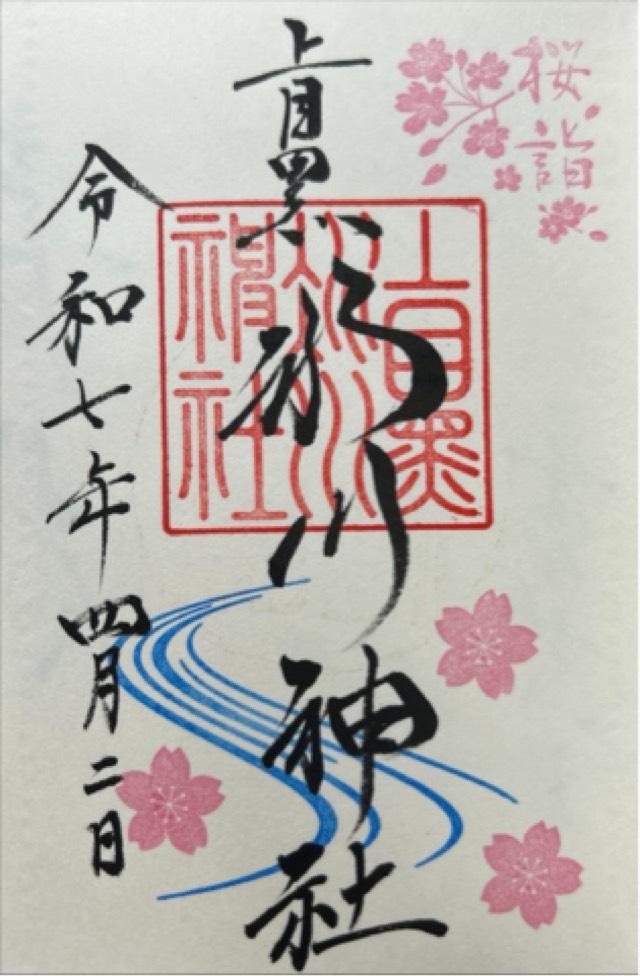 桜詣
上目黒
氷川神社
上目黒
氷川
神社
令和七年四月二日